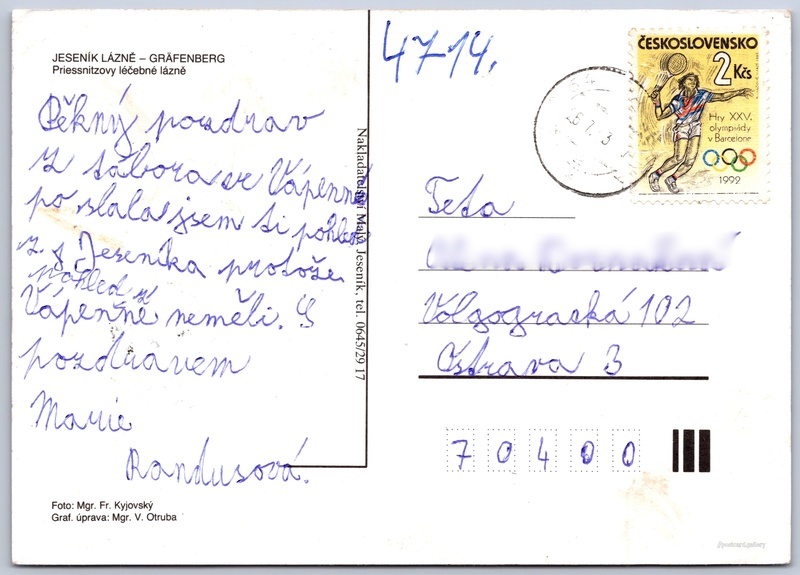 JESENÍK LÁZNĚ – GRÄFENBERG
Priessnitzovy léčebné lázně
Pěkný pozdrav
z tábora ve Vápenné
poslala jsem ti pohled
z Jeseníka protože
pohled z
Vápenné neměli. S
pozdravem
Marie
Randusová.
Foto: Mgr. Fr. Kyjovský
Graf. úprava: Mgr. V. Otruba
Nakladatelství Malý, Jeseník, tel. 0645/29 17
4714.
ČESKOSLOVENSKO
2 Kčs
Hry XXV.
olympiády
v Barceloně
1992
Teta
Volgograská 102
Ostrava 3
70400
//postcard.gallery